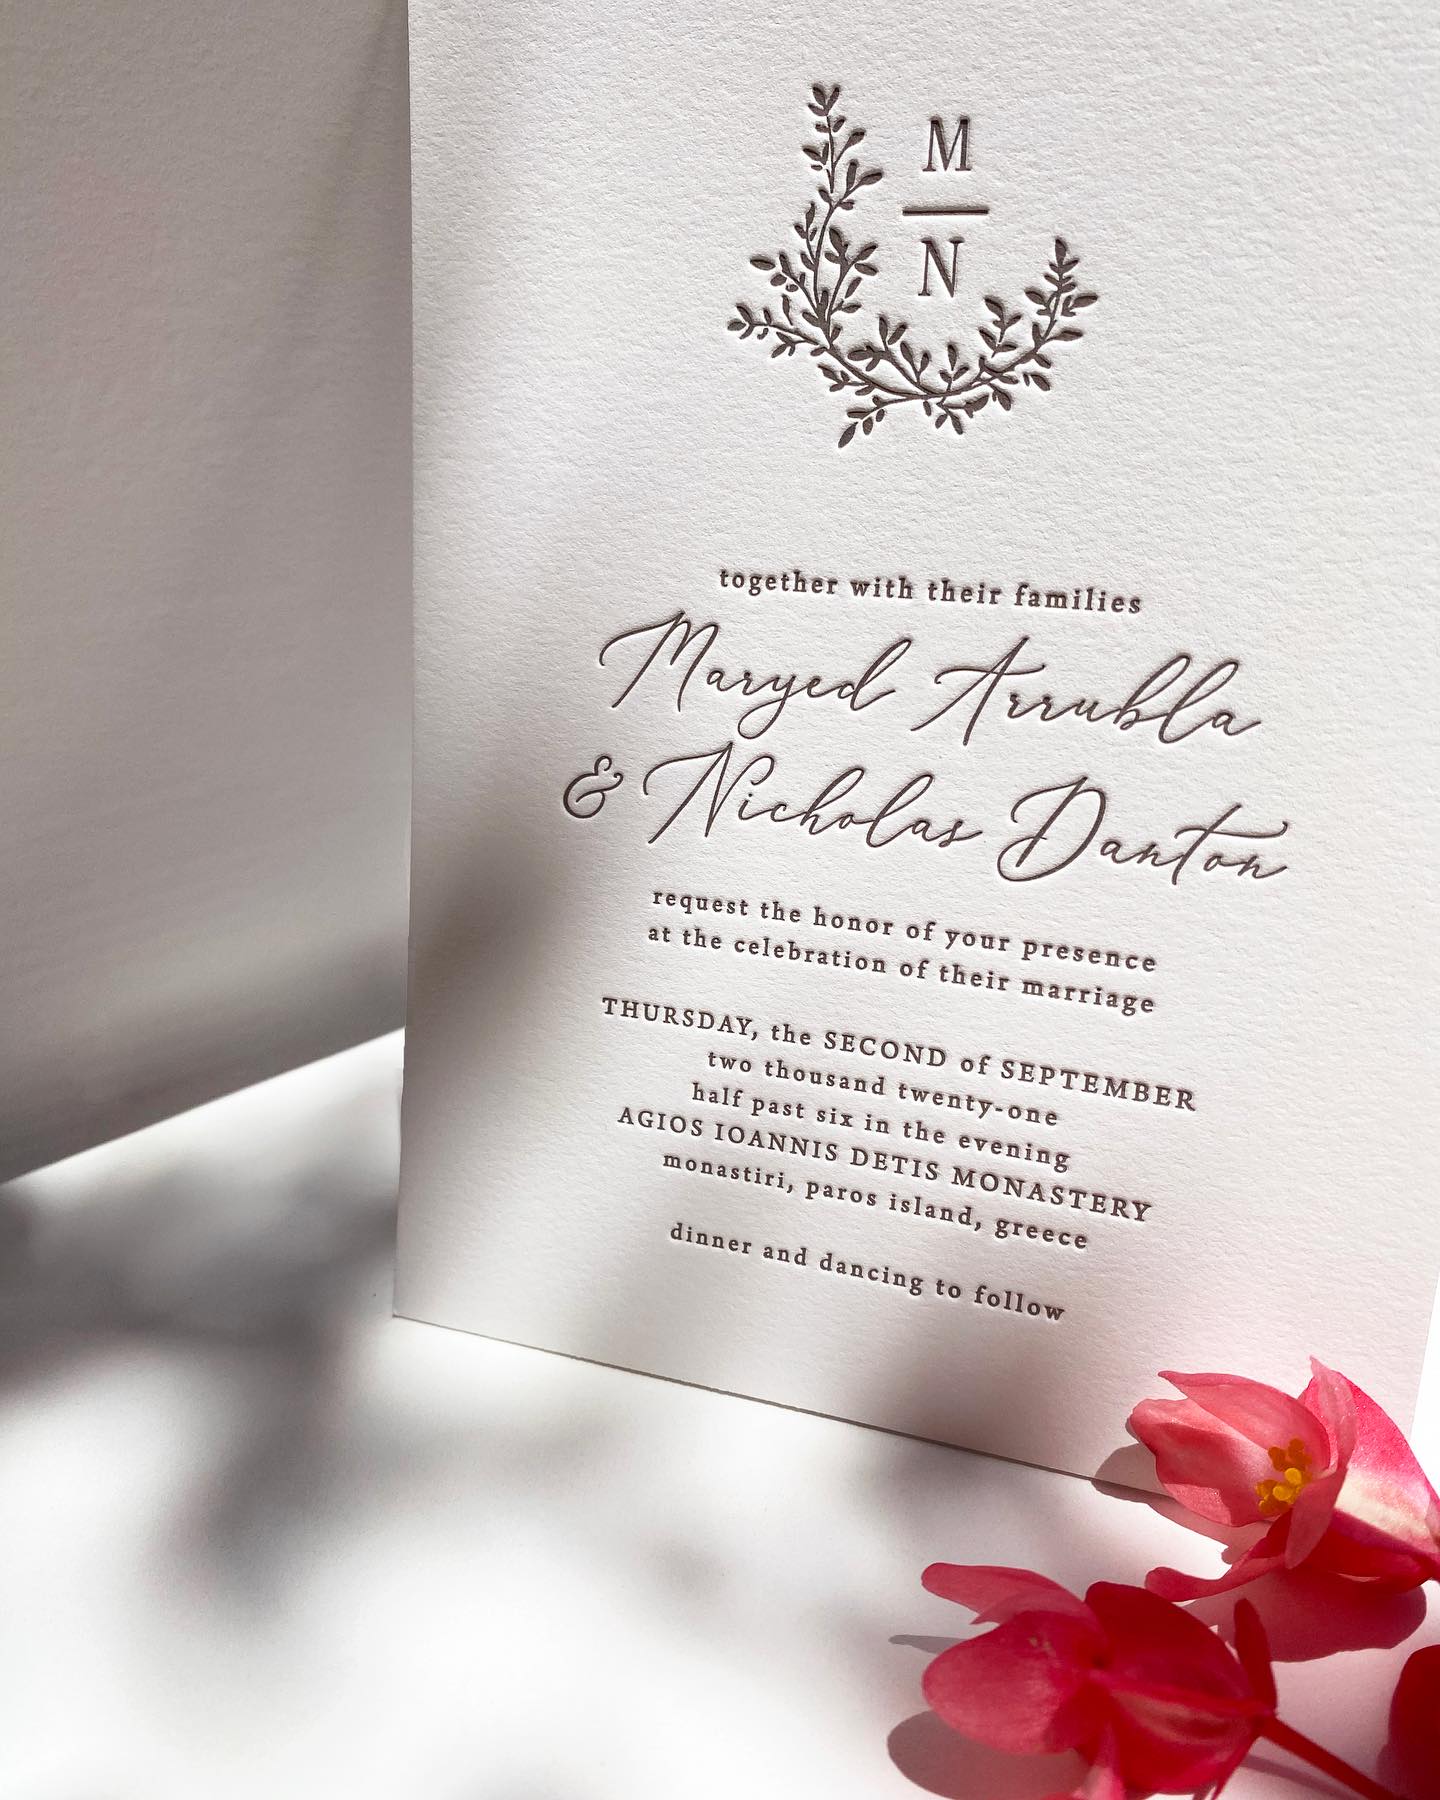 M
N
together with their families
Maryed Arrubla
& Nicholas Danton
request the honor of your presence
at the celebration of their marriage
THURSDAY, the SECOND of SEPTEMBER
two thousand twenty-one
half past six in the evening
AGIOS IOANNIS DETIS MONASTERY
monastiri, paros island, greece
dinner and dancing to follow